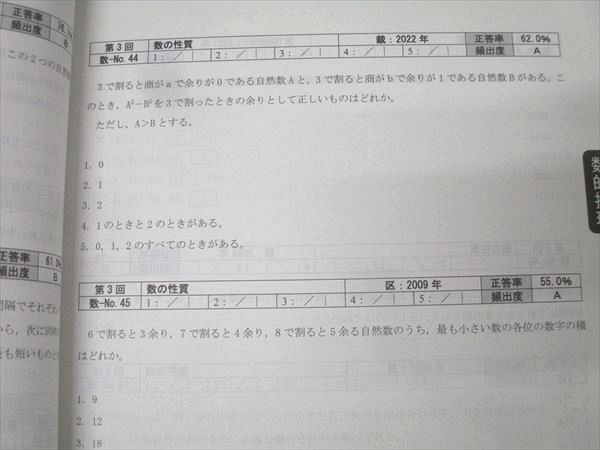 正答率
頻出度 B
この2つの自然
正答率 61.0%
頻出度 B
間隔でそれぞれ
から，次に同時
も短いものと
第3回 数の性質 裁：2022年 正答率 62.0%
数-No.44 1：／ 2：／ 3：／ 4：／ 5：／ 頻出度 A
3で割ると商がaで余りが0である自然数Aと，3で割ると商がbで余りが1である自然数Bがある。こ
のとき，A²−B²を3で割ったときの余りとして正しいものはどれか。
ただし，A＞Bとする。
1. 0
2. 1
3. 2
4. 1のときと2のときがある。
5. 0，1，2のすべてのときがある。
第3回 数の性質 区：2009年 正答率 55.0%
数-No.45 1：／ 2：／ 3：／ 4：／ 5：／ 頻出度 A
6で割ると3余り，7で割ると4余り，8で割ると5余る自然数のうち，最も小さい数の各位の数字の積
はどれか。
1. 9
2. 12
3. 18
数的推理